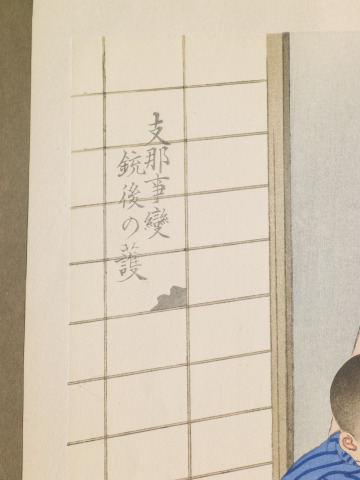 支那事變
銃後の護